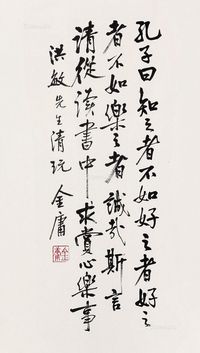 孔子曰知之者不如好之者好之
者不如樂之者誠哉斯言
請從读書中求賞心樂事
洪敏先生清玩
金庸